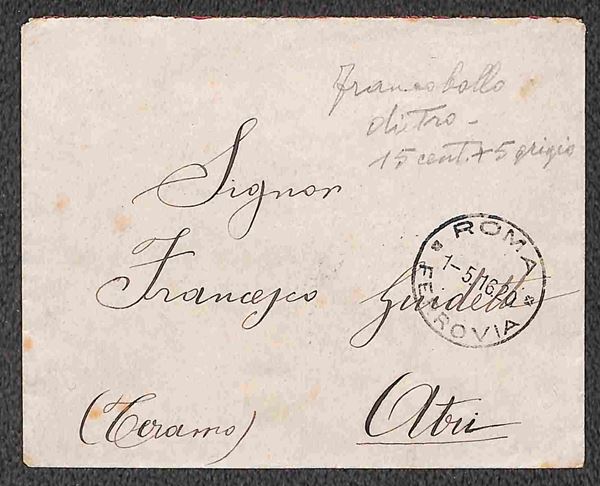 francobollo
dietro -
15 cent. + 5 grigio
Signor
Francesco
ROMA
1-5/16 20
FERROVIA
(Teramo)
Atri